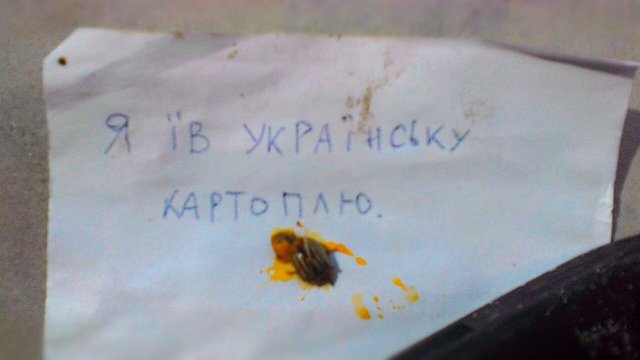 Я ЇВ УКРАЇНСЬКУ
КАРТОПЛЮ.